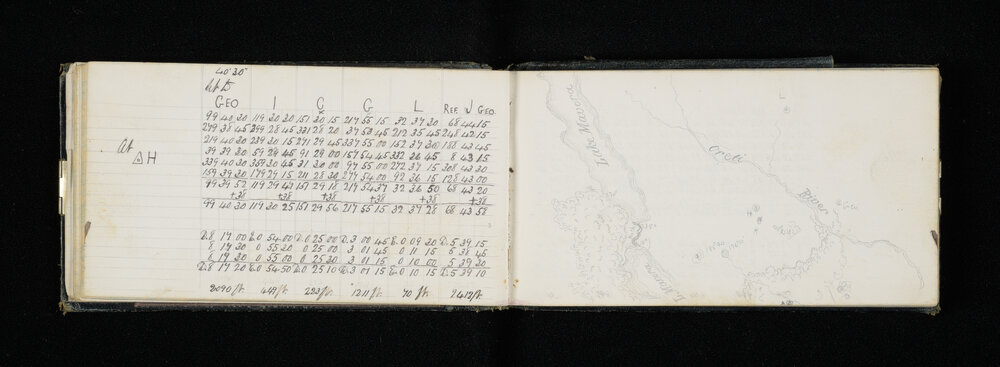 40 30
At D
GEO I C G L REF. J GEO.
99 40 30 119 30 30 151 30 15 217 55 15 32 37 30 68 44 15
279 38 45 299 28 45 331 28 30 37 53 45 212 35 45 248 42 15
219 40 30 239 30 15 271 29 45 337 55 00 152 37 30 188 43 45
39 39 30 59 29 45 91 29 00 157 54 45 332 36 45 8 43 15
339 40 30 359 30 45 31 30 00 97 55 00 272 37 15 308 43 30
159 39 30 179 29 15 211 28 30 277 54 00 92 36 15 128 43 00
99 39 52 119 29 47 151 29 18 217 54 37 32 36 50 68 43 20
+38 +38 +38 +38 +38
99 40 30 119 30 25 151 29 56 217 55 15 32 37 28 68 43 58
At
△ H
D.8 19 00 E.0 54 00 D.0 25 00 D.3 00 45 E.0 09 30 D.5 39 15
8 19 30 0 55 30 0 25 00 3 01 45 0 11 15 5 38 45
8 19 30 0 55 00 0 25 30 3 01 15 0 10 00 5 39 30
D.8 19 20 E.0 54 50 D.0 25 10 D.3 01 15 E.0 10 15 D.5 39 10
2090 ft. 449 ft. 223 ft. 1211 ft. 70 ft. 9412 ft.
L
Lake Mavora
Oreti
River
Geo